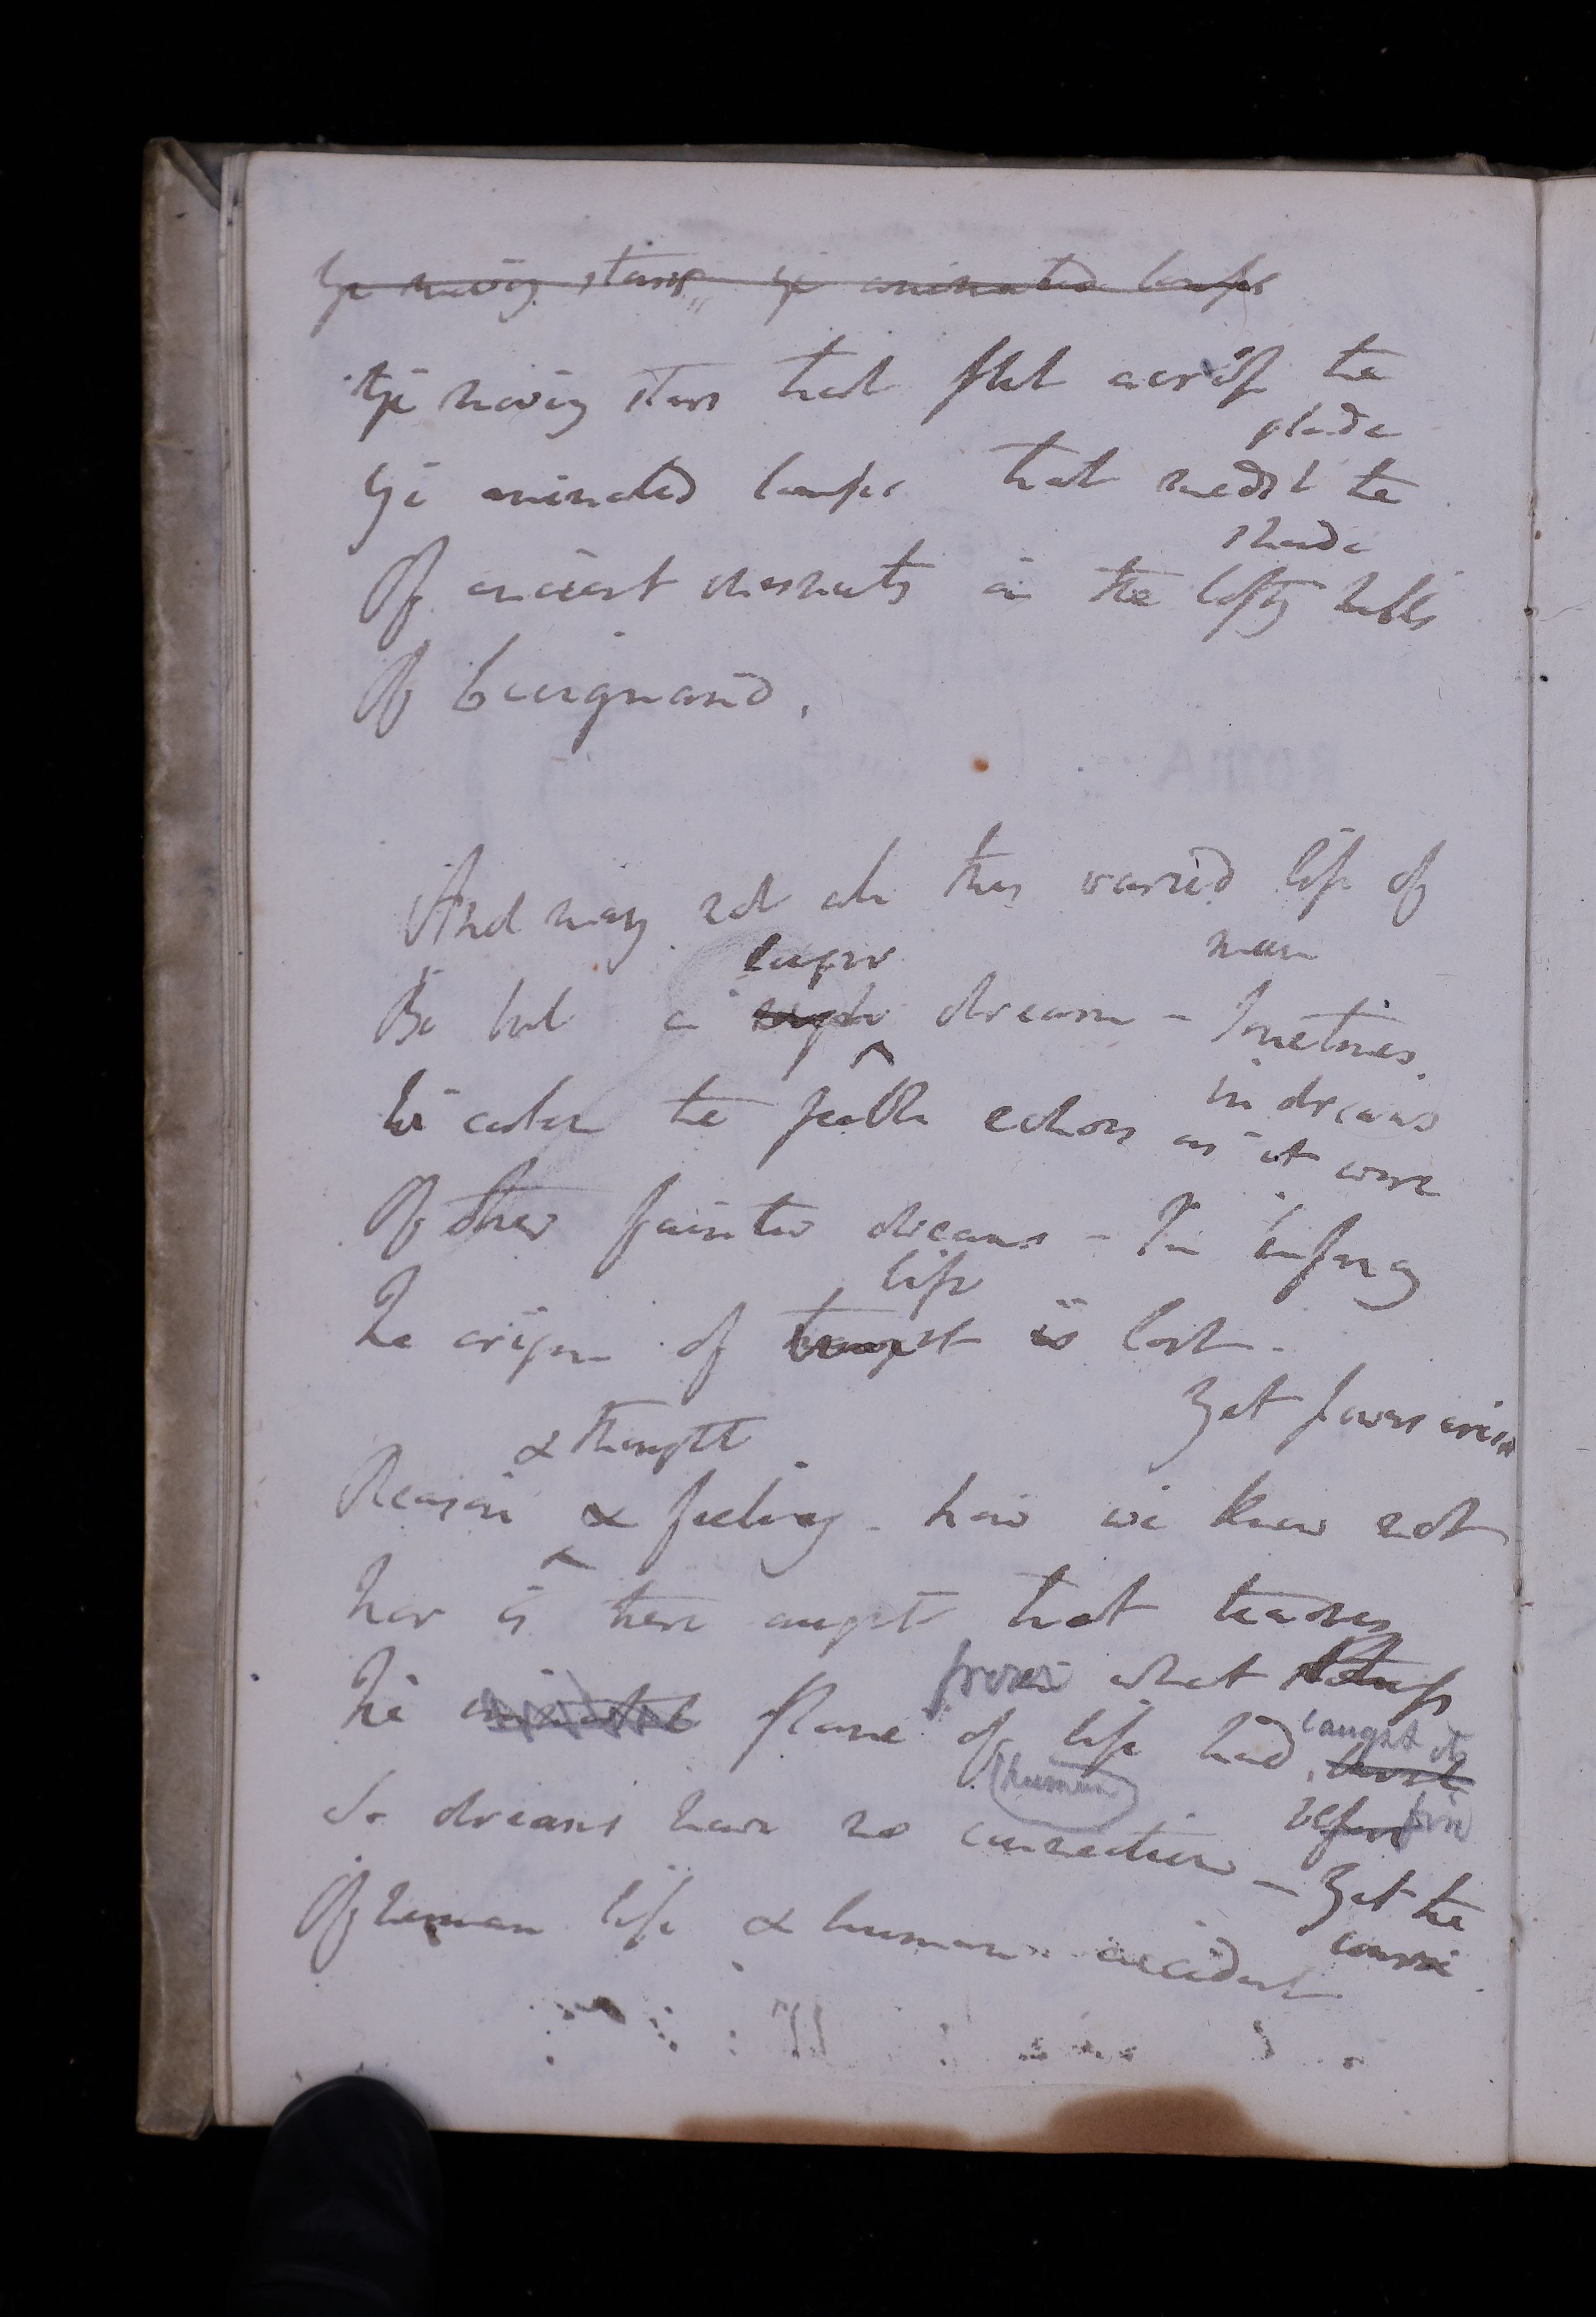 Ye moving stars ye animated lamps
Ye moving stars that flit across the
glade
Ye animated lamps that midst the
shade
Of ancient chesnuts in the lofty hills
Of
And may not all this varied life of
man
Be but a larger dream - Sometimes
in dreams
We catch the feeble echoes as it were
Of other fainter dreams - In infancy
life
The origin of thought is lost.
Yet powers arise
& thought
Reason & feeling - how we know not
Nor is there aught that teaches
from what lamp
The animated flame of life had caught its
fire
human
So dreams have no connection - Yet the
course
Of human life & human accident